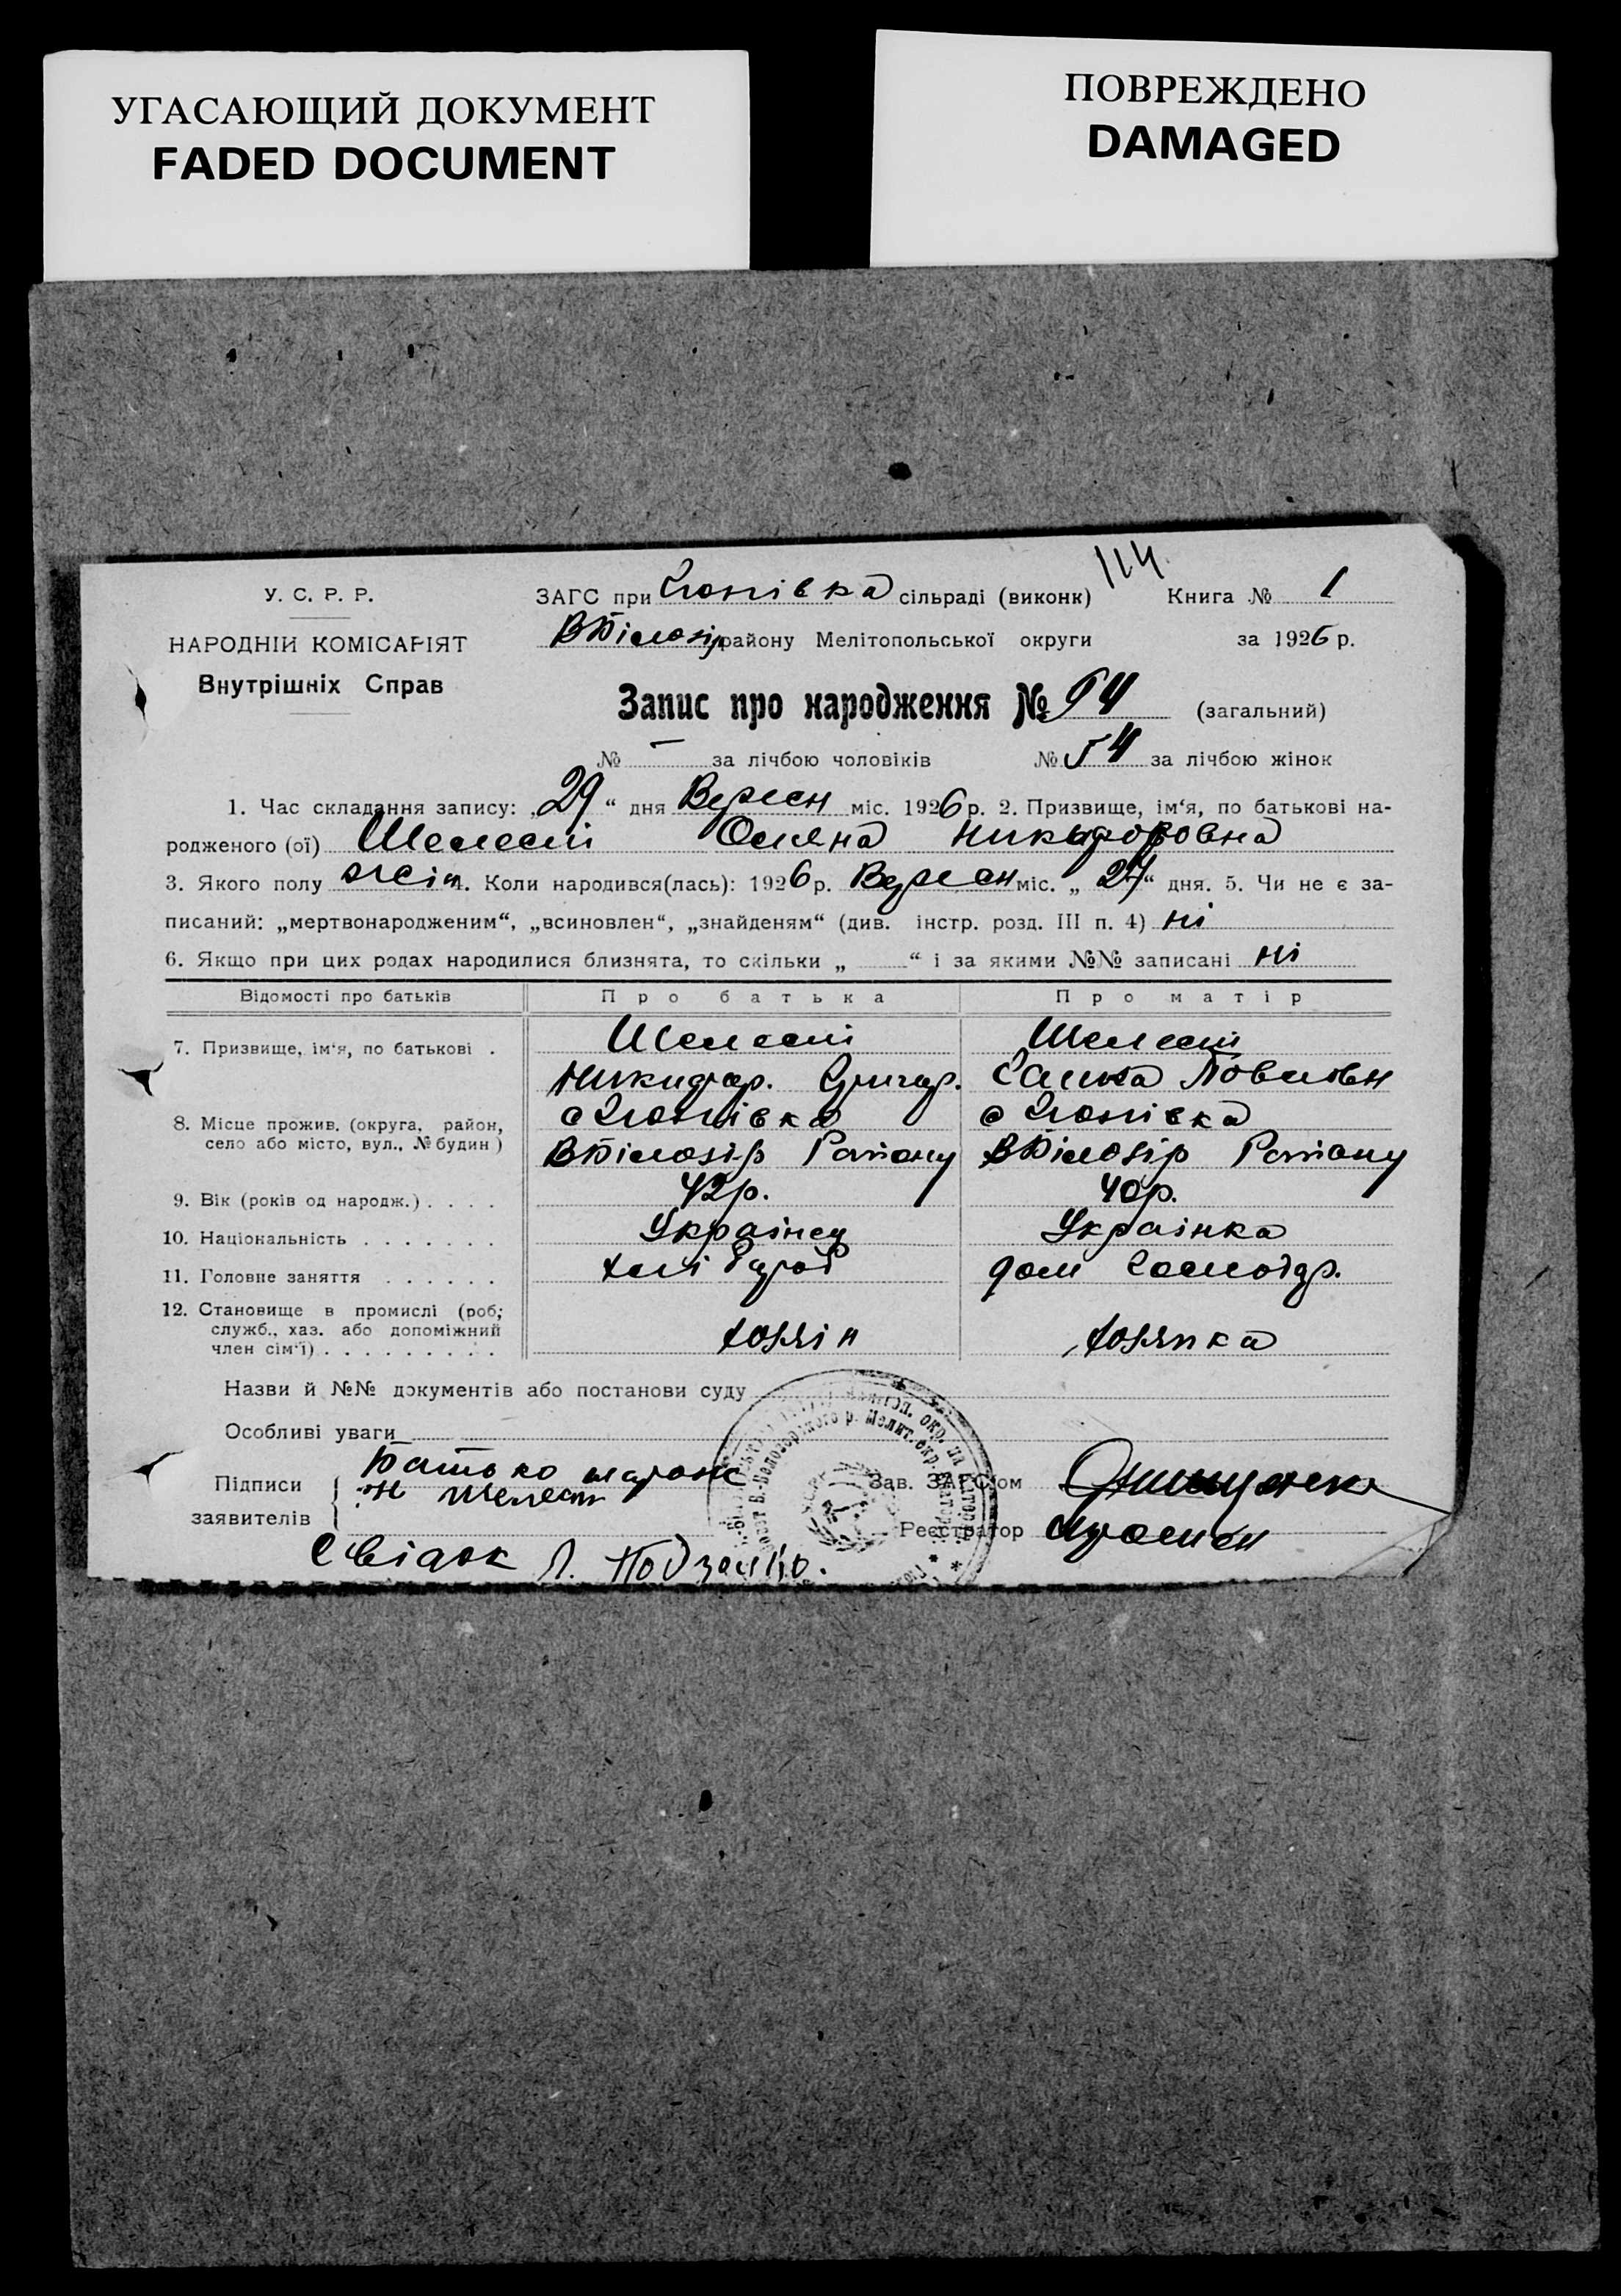 УГАСАЮЩИЙ ДОКУМЕНТ
FADED DOCUMENT
ПОВРЕЖДЕНО
DAMAGED
114
У. С. Р. Р.
НАРОДНІЙ КОМІСАРІЯТ
Внутрішніх Справ
ЗАГС при сільраді (виконк) Книга № 1
ВБілозір району Мелітопольської округи за 1926 р.
Запис про народження № 94 (загальний)
№ — за лічбою чоловіків № 54 за лічбою жінок
1. Час складання запису: „29“ дня Вересн міс. 1926 р. 2. Призвище, ім‘я, по батькові на-
родженого (ої) Шелест Олена Никифоровна
3. Якого полу жін 4. Коли народився(лась): 1926 р. Вересн міс. „27“ дня. 5. Чи не є за-
писаний: „мертвонародженим“, „всиновлен“, „знайденям“ (див. інстр. розд. III п. 4) ні
6. Якщо при цих родах народилися близнята, то скільки „ “ і за якими №№ записані ні
Відомості про батьків Про батька Про матір
7. Призвище, ім‘я, по батькові . Шелест Шелест
Никифор. Григор.
8. Місце прожив. (округа, район,
село або місто, вул., № будин)
ВБілозір Району ВБілозір Району
9. Вік (років од народж.) . . . . 42р. 40р.
10. Національність . . . . . . . Украінец Украінка
11. Головне заняття . . . . . . Хлібороб дом Господр.
12. Становище в промислі (роб;
служб., хаз. або допоміжний
член сім‘ї) . . . . . . . . . хозяін хозяпка
Назви й №№ документів або постанови суду
Особливі уваги
Підписи
заявителів
Батько
Н Шелест
Свідок Л.
Зав. ЗАГС‘ом
Реєстратор